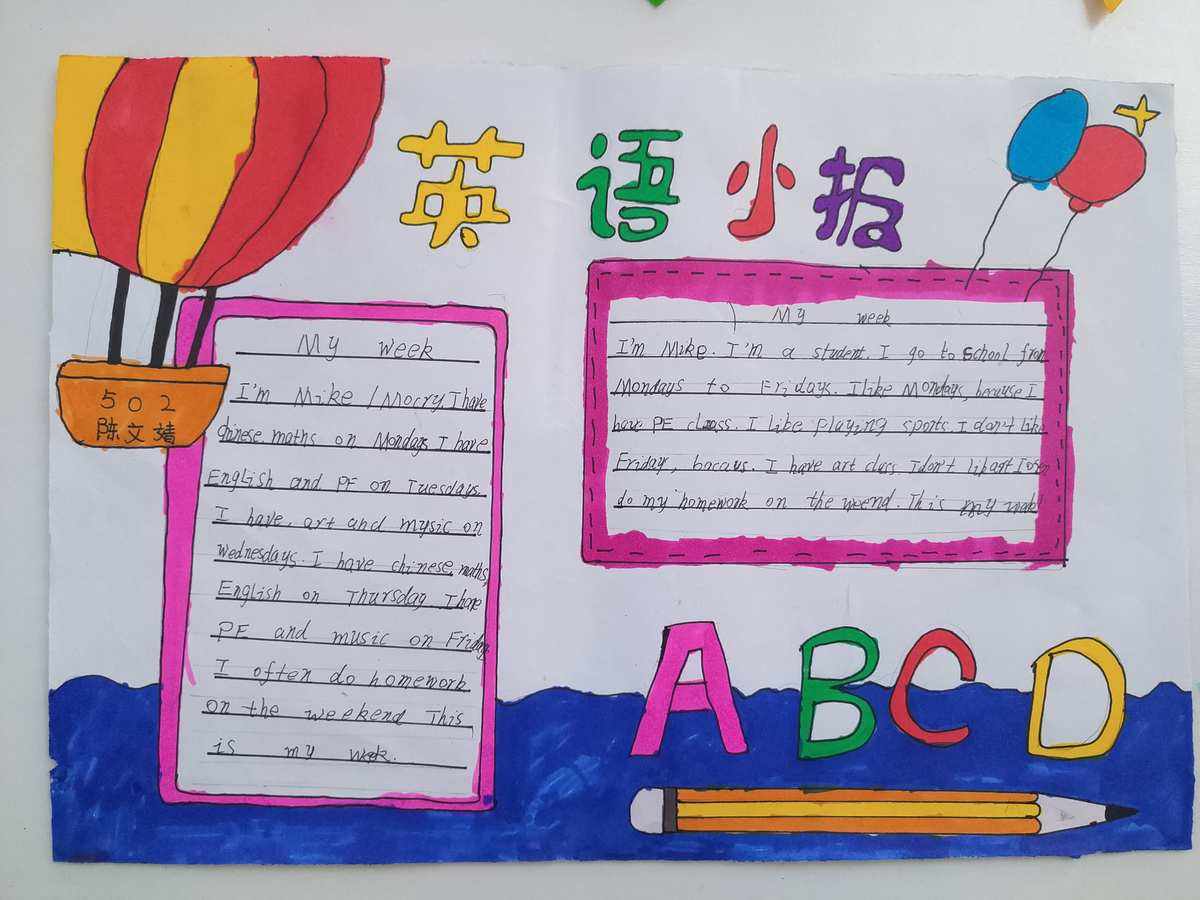 英语小报
502
陈文婧
My week
I'm Mike / Mocry. I have
chinese maths on Mondays I have
English and PE on Tuesdays.
I have art and music on
wednesdays. I have chinese, maths,
English on Thursday I have
PE and music on Friday
I often do homework
on the weekend This
is my week.
My week
I'm Mike. I'm a student. I go to school from
Mondays to Fridays. I like Mondays, because I
have PE class. I like playing sports. I don't like
Friday, bacaus. I have art class. I don't lik art I often
do my homework on the weend. This my weak
ABCD